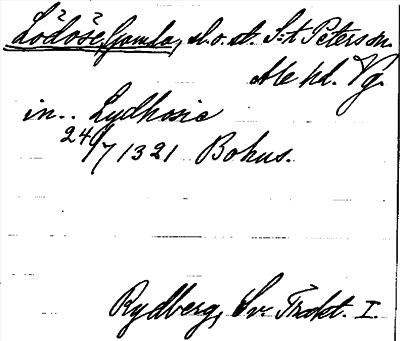 Lödöse, Gamla, d.o.d. S:t Peters sn.
Ale hd. Vg.
in .. Lydhosie
24/7 1321 Bohus.
Rydberg, Sv. Trakt. I.